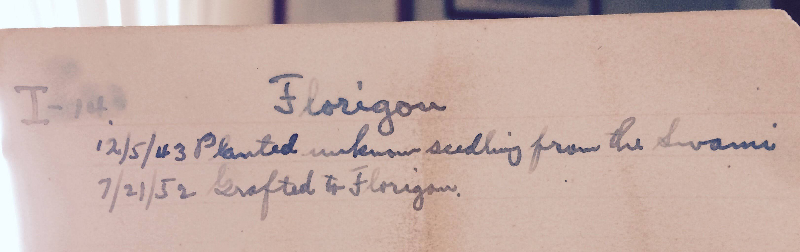 I-14 Florigon
12/5/43 Planted unknown seedling from the Swami
7/21/52 Grafted to Florigon.